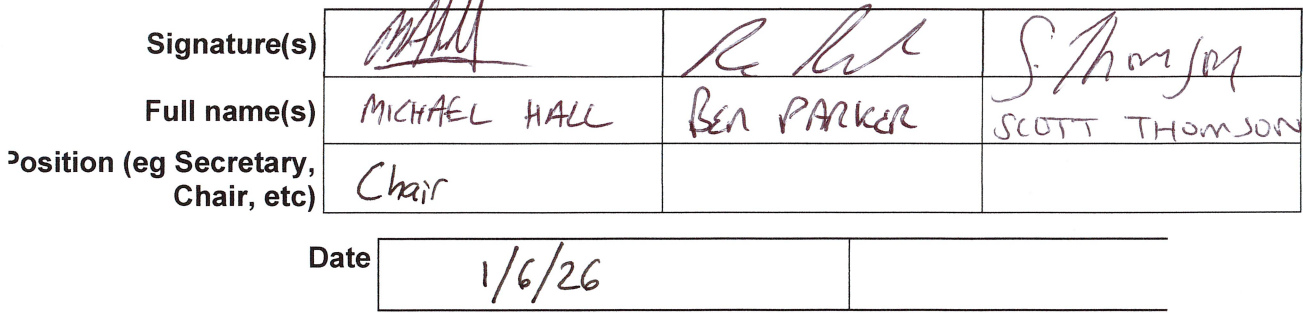 Signature(s) S. Thomson
Full name(s) MICHAEL HALL BEN PARKER SCOTT THOMSON
Position (eg Secretary,
Chair, etc) Chair
Date 1/6/26